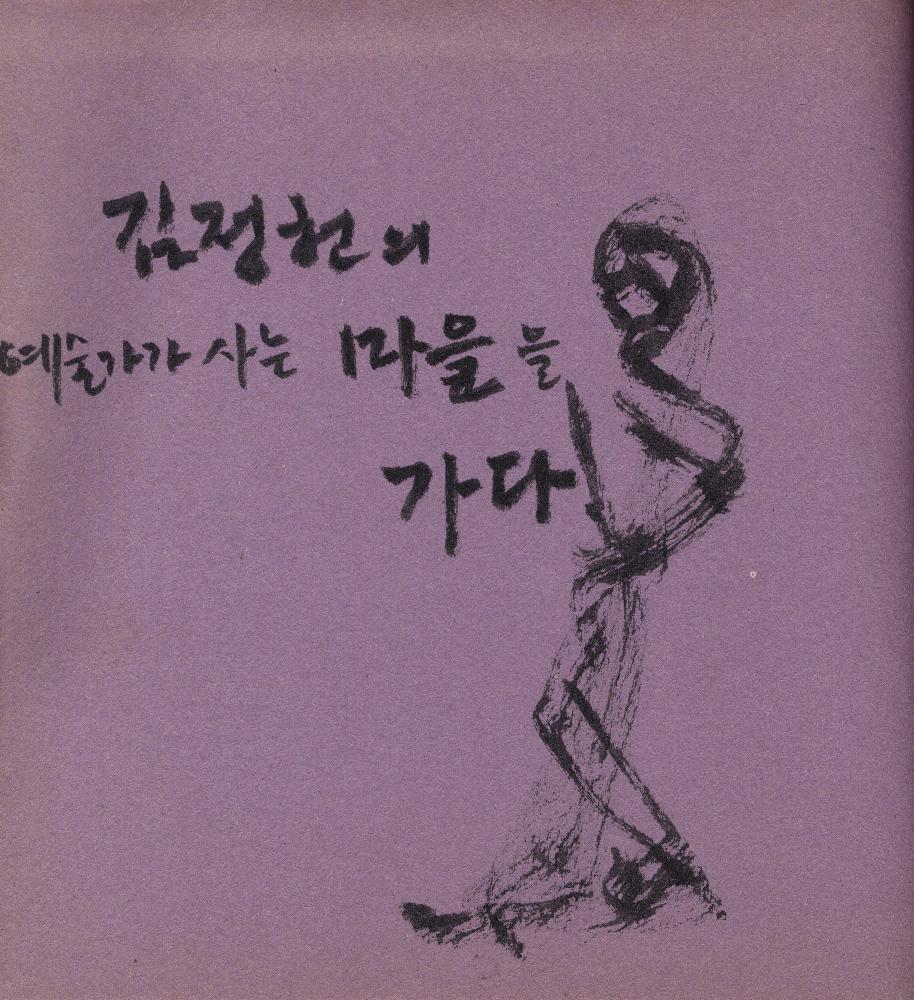 김정헌의
예술가가 사는 마을을
가다